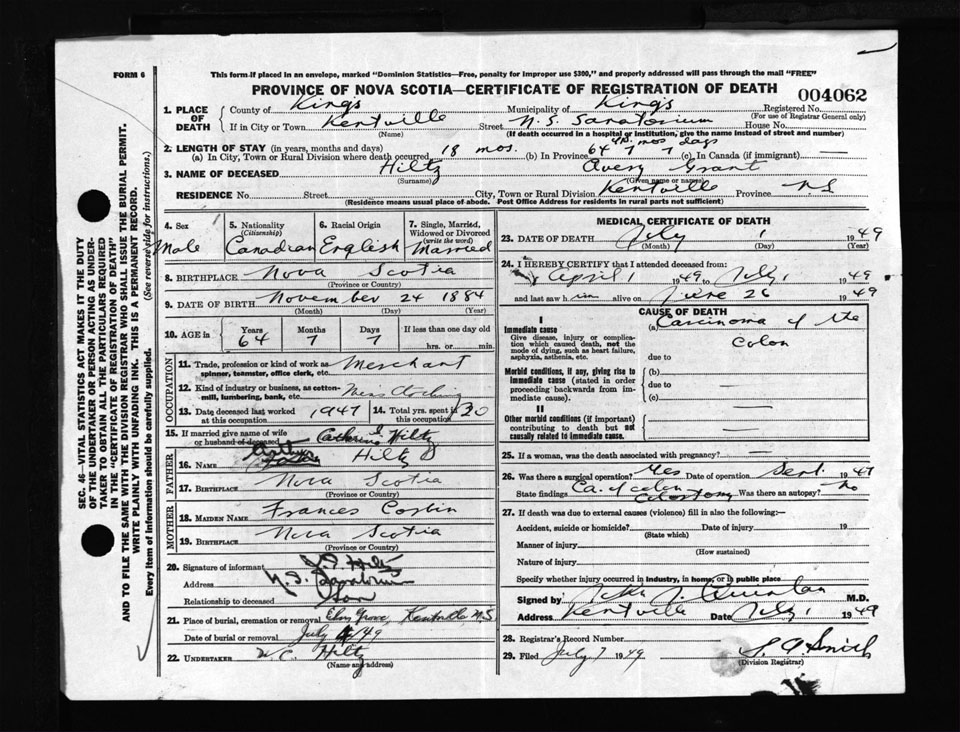 FORM 6
This form if placed in an envelope, marked "Dominion Statistics—Free, penalty for improper use $300," and properly addressed will pass through the mail "FREE"
PROVINCE OF NOVA SCOTIA—CERTIFICATE OF REGISTRATION OF DEATH
004062
1. PLACE OF DEATH
County of Kings Municipality of Kings Registered No.
(For use of Registrar General only)
If in City or Town Kentville Street N.S. Sanatorium House No.
(Name) (If death occurred in a hospital or institution, give the name instead of street and number)
2. LENGTH OF STAY (in years, months and days) yrs mos days
(a) In City, Town or Rural Division where death occurred 18 mos. (b) In Province 64 7 7 (c) In Canada (if immigrant) —
3. NAME OF DECEASED Hiltz Avery Grant
(Surname) (Given name or names)
RESIDENCE No. Street City, Town or Rural Division Kentville Province NS
(Residence means usual place of abode. Post Office Address for residents in rural parts not sufficient)
SEC. 46—VITAL STATISTICS ACT MAKES IT THE DUTY
OF THE UNDERTAKER OR PERSON ACTING AS UNDER-
TAKER TO OBTAIN ALL THE PARTICULARS REQUIRED
IN THE "CERTIFICATE OF REGISTRATION OF DEATH"
AND TO FILE THE SAME WITH THE DIVISION REGISTRAR WHO SHALL ISSUE THE BURIAL PERMIT.
WRITE PLAINLY WITH UNFADING INK. THIS IS A PERMANENT RECORD.
Every item of information should be carefully supplied. (See reverse side for instructions.)
4. Sex Male
5. Nationality (Citizenship) Canadian
6. Racial Origin English
7. Single, Married, Widowed or Divorced (write the word) Married
8. BIRTHPLACE Nova Scotia
(Province or Country)
9. DATE OF BIRTH November 24 1884
(Month) (Day) (Year)
10. AGE in Years 64 Months 7 Days 7 If less than one day old hrs. or min.
OCCUPATION
11. Trade, profession or kind of work as spinner, teamster, office clerk, etc. Merchant
12. Kind of industry or business, as cotton-mill, lumbering, bank, etc. Mens Clothing
13. Date deceased last worked at this occupation 1947
14. Total yrs. spent in this occupation 20
15. If married give name of wife or husband of deceased Catherine Hiltz
FATHER
16. Name Hiltz
17. Birthplace Nova Scotia
(Province or Country)
MOTHER
18. MAIDEN NAME Frances Corbin
19. Birthplace Nova Scotia
(Province or Country)
20. Signature of informant Hiltz
Address N.S. Sanatorium
Relationship to deceased Son
21. Place of burial, cremation or removal Elm Grove, Kentville N.S
Date of burial or removal July 4/49
22. UNDERTAKER W.C. Hiltz
(Name and address)
MEDICAL CERTIFICATE OF DEATH
23. DATE OF DEATH July 1 1949
(Month) (Day) (Year)
24. I HEREBY CERTIFY that I attended deceased from:
April 1 1949 to July 1 1949
and last saw him alive on June 26 1949
CAUSE OF DEATH
I
Immediate cause
Give disease, injury or complication which caused death, not the mode of dying, such as heart failure, asphyxia, asthenia, etc.
(a) Carcinoma of the Colon
due to
Morbid conditions, if any, giving rise to immediate cause (stated in order proceeding backwards from immediate cause).
(b) —
due to —
(c) —
II
Other morbid conditions (if important) contributing to death but not causally related to immediate cause.
—
25. If a woman, was the death associated with pregnancy? —
26. Was there a surgical operation? Yes Date of operation Sept. 1947
State findings Ca. of colon Colostomy Was there an autopsy? No
27. If death was due to external causes (violence) fill in also the following:—
Accident, suicide or homicide? Date of injury 19
(State which)
Manner of injury
(How sustained)
Nature of injury
Specify whether injury occurred in industry, in home, or in public place
Signed by J. Quinlan M.D.
Address Kentville Date July 1 1949
28. Registrar's Record Number
29. Filed July 7 1949
Smith
(Division Registrar)